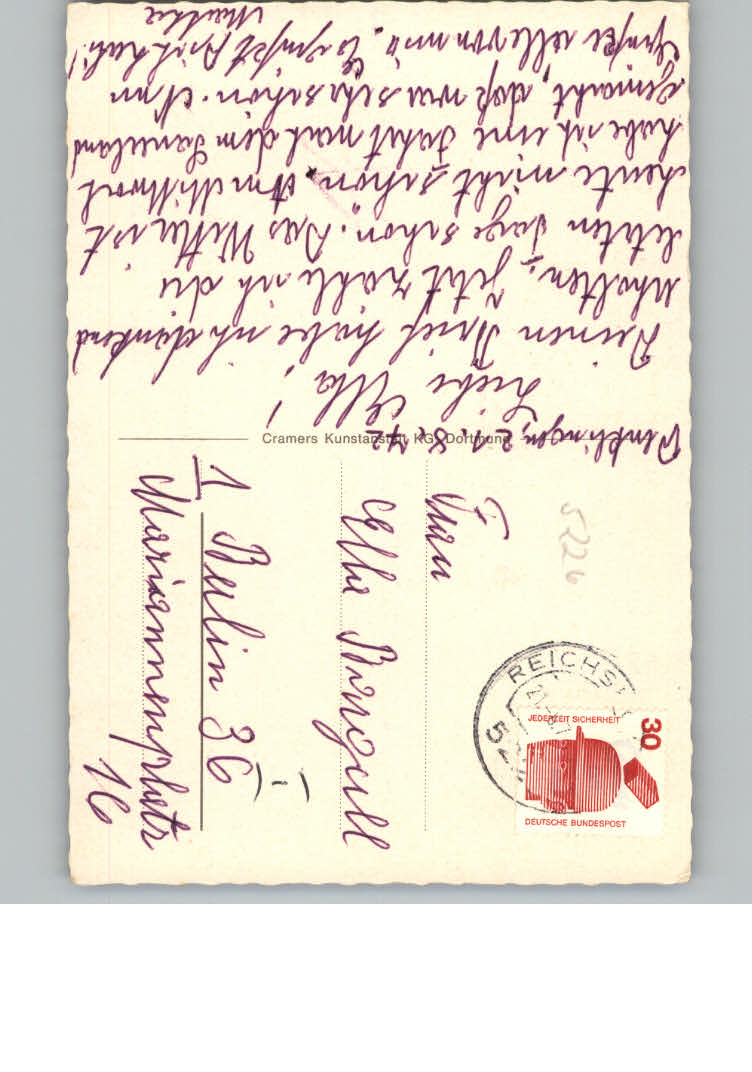 Denklingen, 21. 8. 72
Liebe Ella!
Deinen Brief habe ich dankend
erhalten, jetzt zähle ich die
letzten Tage schon. Das Wetter ist
heute nicht schön. Am Mittwoch
habe ich eine Fahrt nach dem Sauerland
gemacht, daß war sehr schön. Nun
Grüße alle von mir. Es grüßt Dich
Martha
Cramers Kunstanstalt KG, Dortmund
Frau
Ella
1 Berlin 36
Mariannenplatz
16
5226
REICHSH
JEDERZEIT SICHERHEIT
30
DEUTSCHE BUNDESPOST